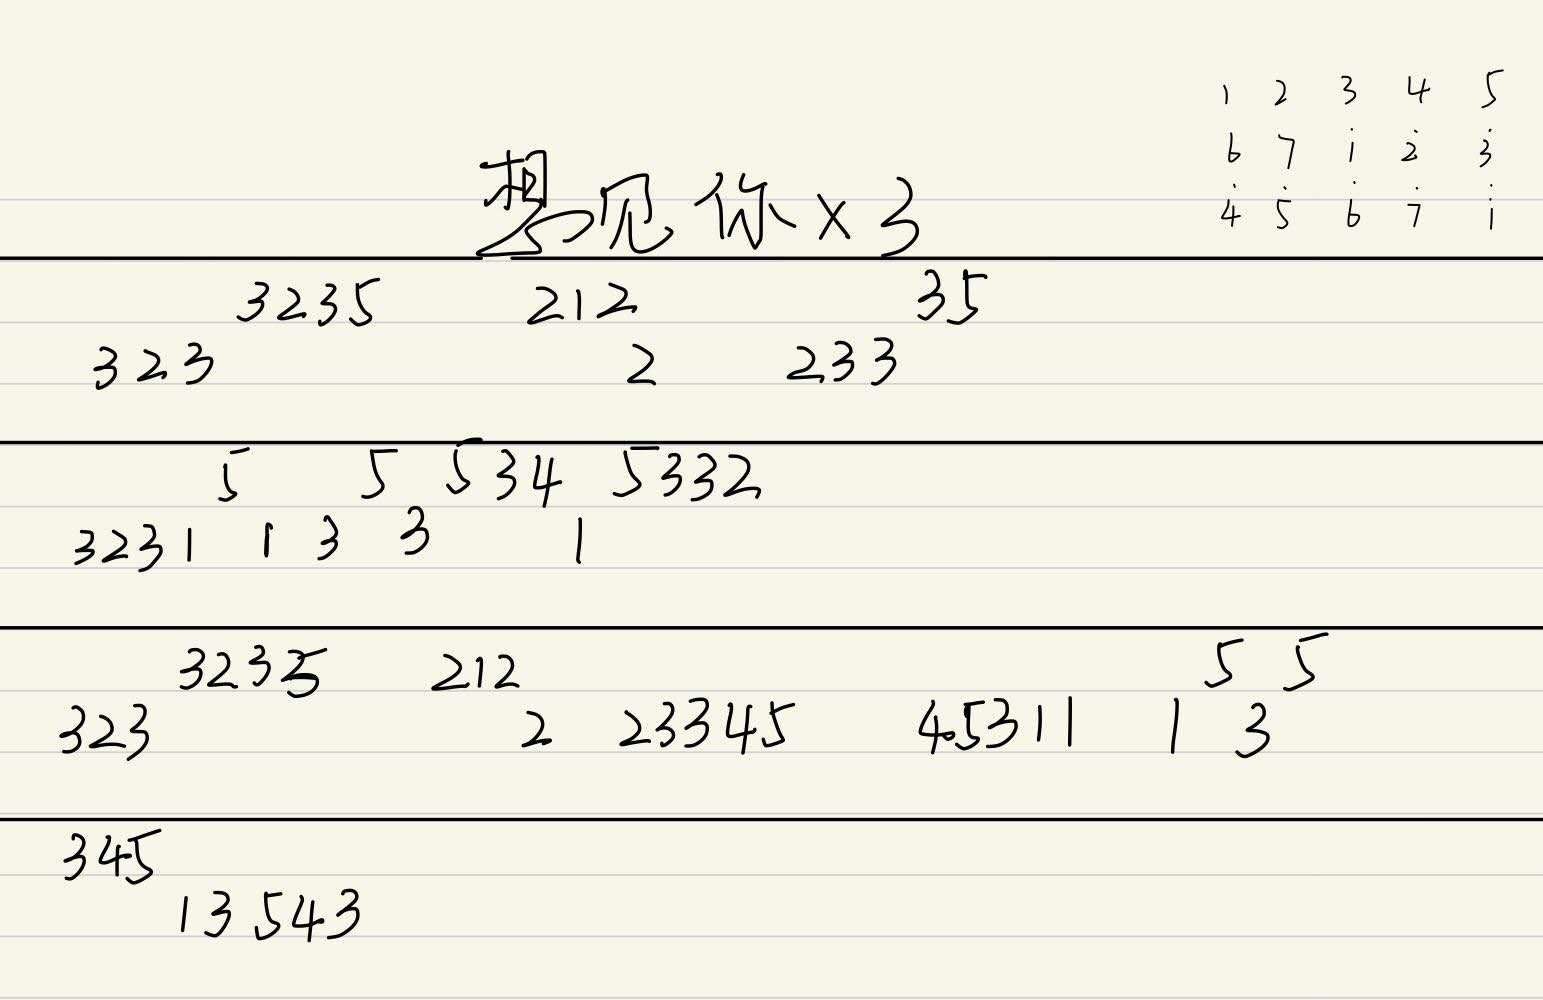 1 2 3 4 5
6 7 i 2̇ 3̇
4̇ 5̇ 6̇ 7̇ i
想见你×3
3235 212 35
323 2 233
5 5 534 5332
3231 1 3 3 1
3235 212 5 5
323 2 23345 45311 1 3
345
13543